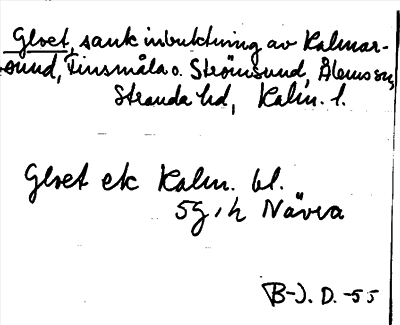 Gloet, sank inbuktning av Kalmar-
sund, Finsmåla o. Strömsund, Ålems sn,
Stranda hd, Kalm. l.
Gloet ek Kalm. bl.
5g, h Nävra
B-J. D. -55